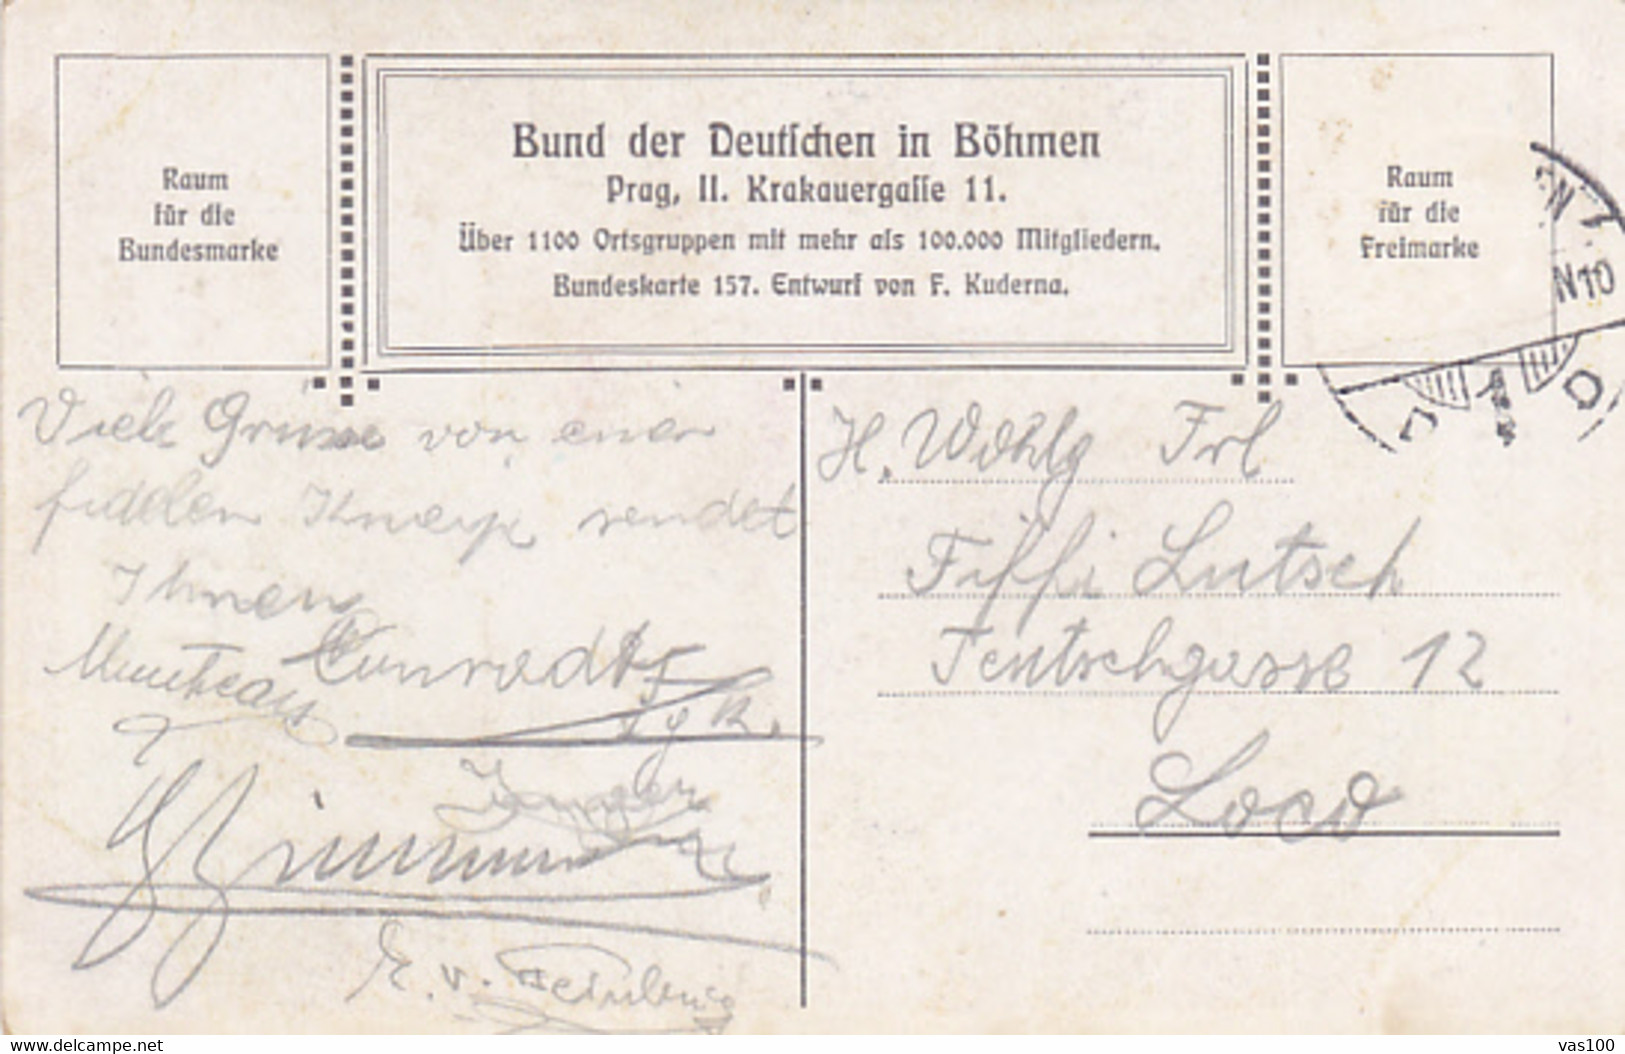 Raum
für die
Bundesmarke
Bund der Deutschen in Böhmen
Prag, II. Krakauergasse 11.
Über 1100 Ortsgruppen mit mehr als 100.000 Mitgliedern.
Bundeskarte 157. Entwurf von F. Kuderna.
Raum
für die
Freimarke
N10
Viele Grüsse von einer
fidelen Kneipe sendet
Ihnen
Conradt
E. v.
H. Wohlg Frl
Fiffi Lutsch
Tentschgasse 12
Loco
www.delcampe.net
vas100